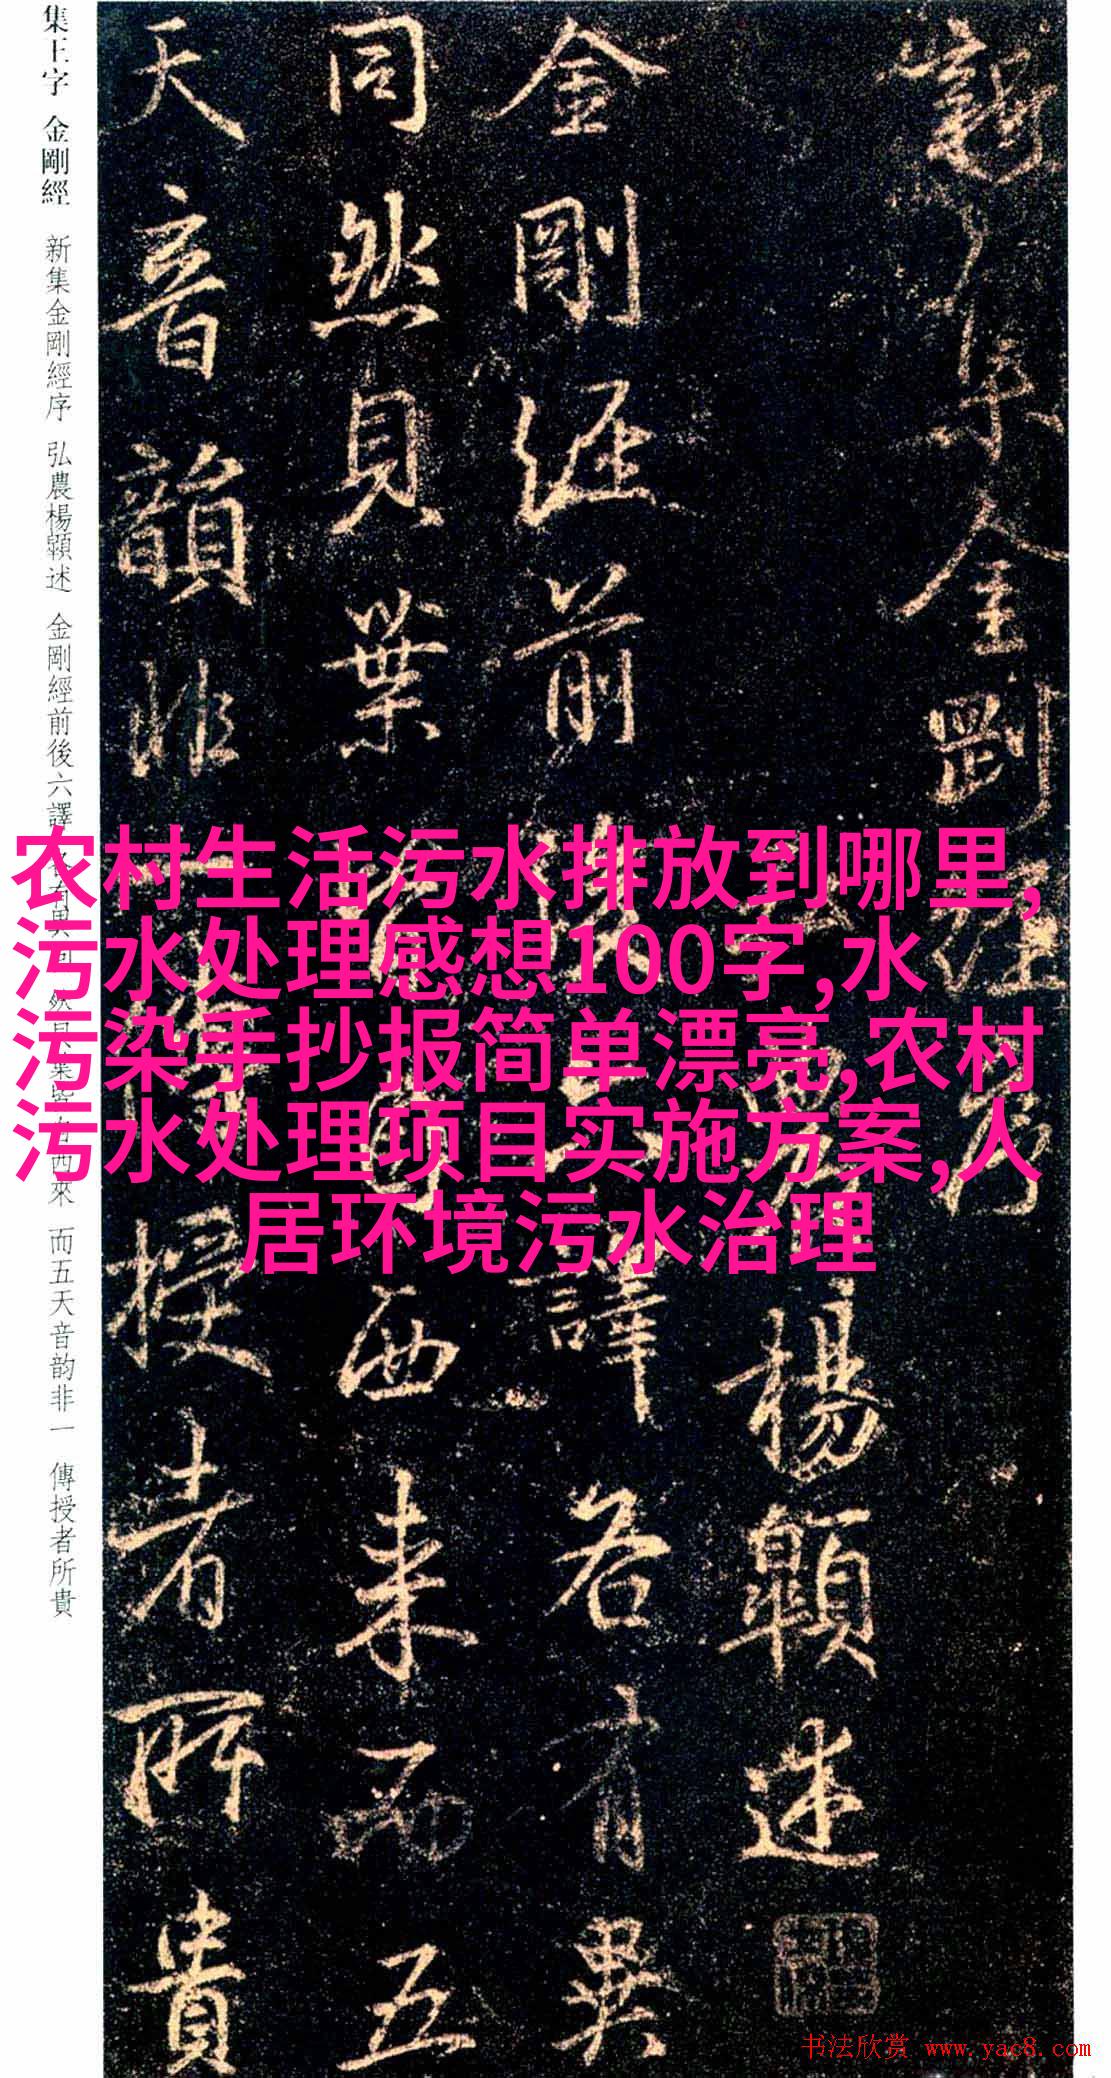 農村生活污水排放到哪里,
污水处理感想100字,水
污染手抄报简单漂亮,农村
污水处理项目实施方案,人
居环境污水治理
新集金剛經序
楊顒述
金剛經前
譯各有異
同然貝葉
西来而五
天音韻非
授者所貴
集王字 金剛經 新集金剛經序 弘農楊顒述 金剛經前後六譯
西來 而五天音韵非一 傳授者所貴
书法欣赏 www.yac8.com